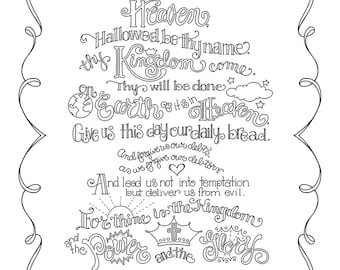 Heaven.
Hallowed be thy name.
thy Kingdom come.
Thy will be done
on Earth as it is in Heaven.
Give us this day our daily bread.
And forgive us our debts
as we forgive our debtors
And lead us not into temptation
but deliver us from evil.
For thine is the Kingdom
and the Power and the Glory